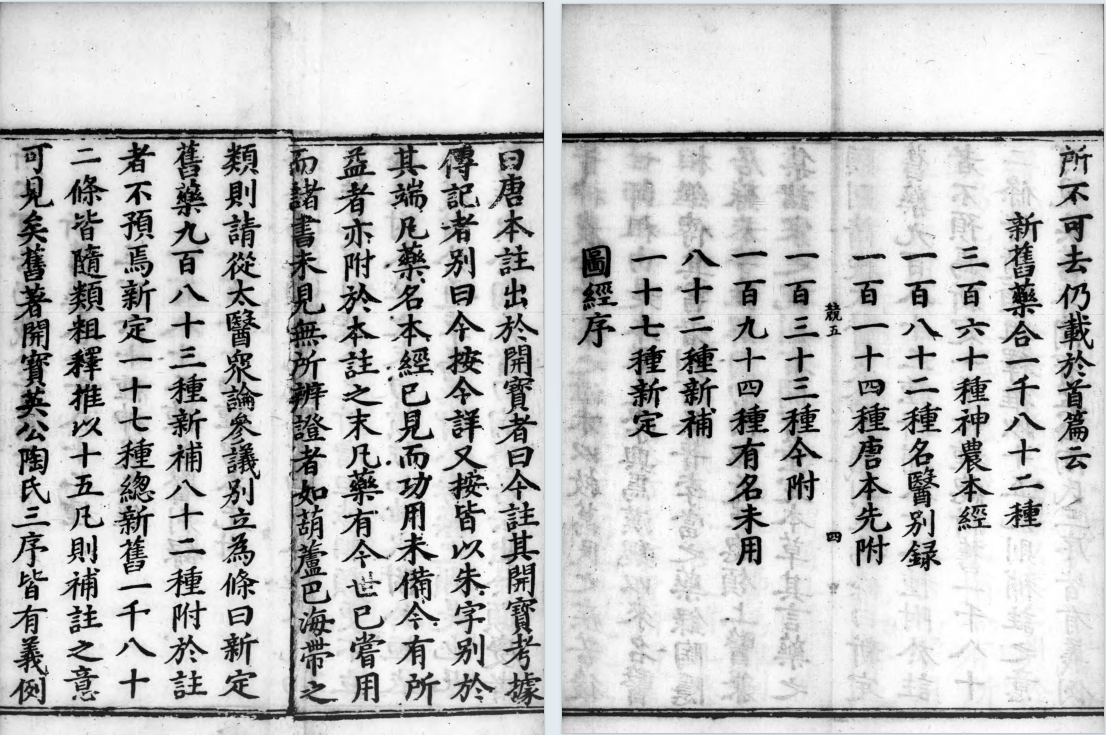 曰唐本註出於開寶者曰今註其開寶考據
傳記者別曰今按今詳又按皆以朱字別於
其端凡藥名本經已見而功用未備今有所
益者亦附於本註之末凡藥有今世已嘗用
而諸書未見無所辨證者如葫蘆巴海帶之
類則請從太醫眾論參議別立為條曰新定
舊藥九百八十三種新補八十二種附於註
者不預焉新定一十七種總新舊一千八十
二條皆隨類粗釋推以十五凡則補註之意
可見矣舊著開寶英公陶氏三序皆有義例
所不可去仍載於首篇云
新舊藥合一千八十二種
三百六十種神農本經
一百八十二種名醫別録
一百一十四種唐本先附
四
一百三十三種今附
一百九十四種有名未用
八十二種新補
一十七種新定
圖經序